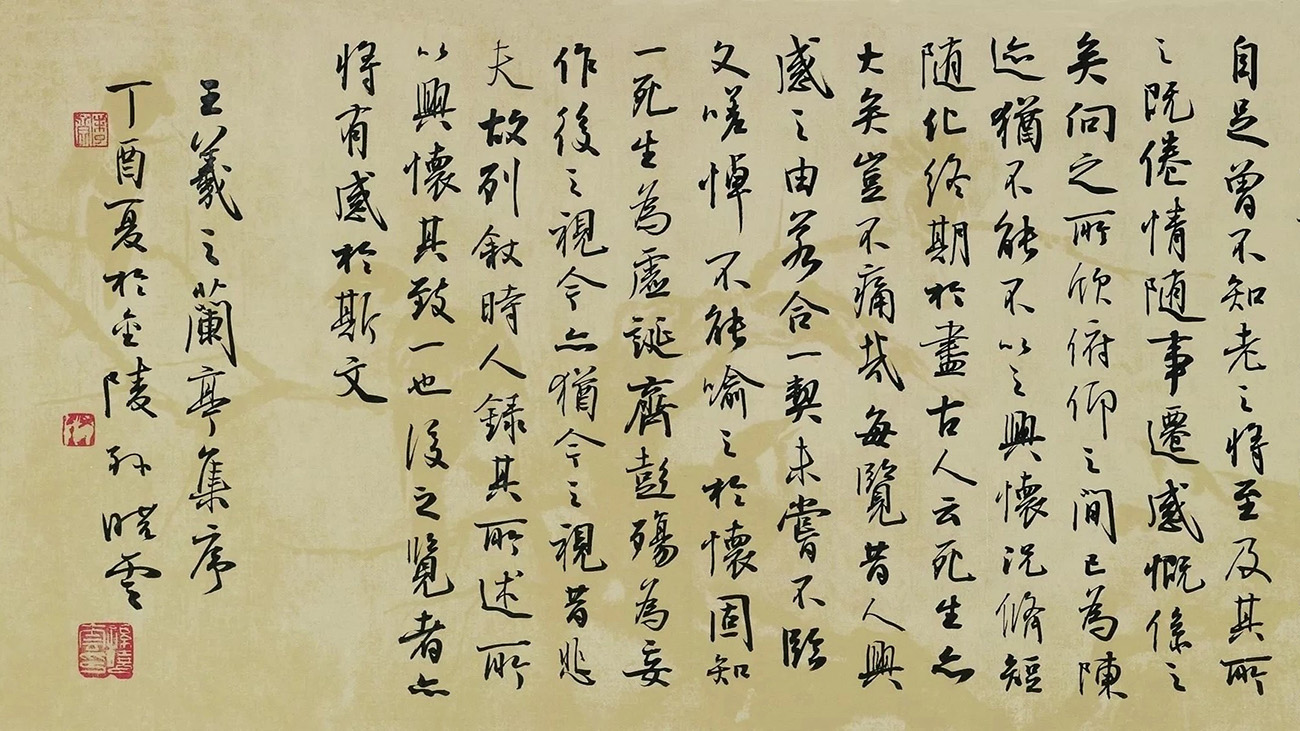 自足曾不知老之将至及其所
之既倦情随事遷感慨係之
矣向之所欣俯仰之間已為陳
迹猶不能不以之興懷況脩短
随化終期於盡古人云死生亦
大矣豈不痛哉每覽昔人興
感之由若合一契未嘗不臨
文嗟悼不能喻之於懷固知
一死生為虛誕齊彭殤為妄
作後之視今亦猶今之視昔悲
夫故列敘時人錄其所述所
以興懷其致一也後之覽者亦
将有感於斯文
王羲之蘭亭集序
丁酉夏於金陵孫曉雲